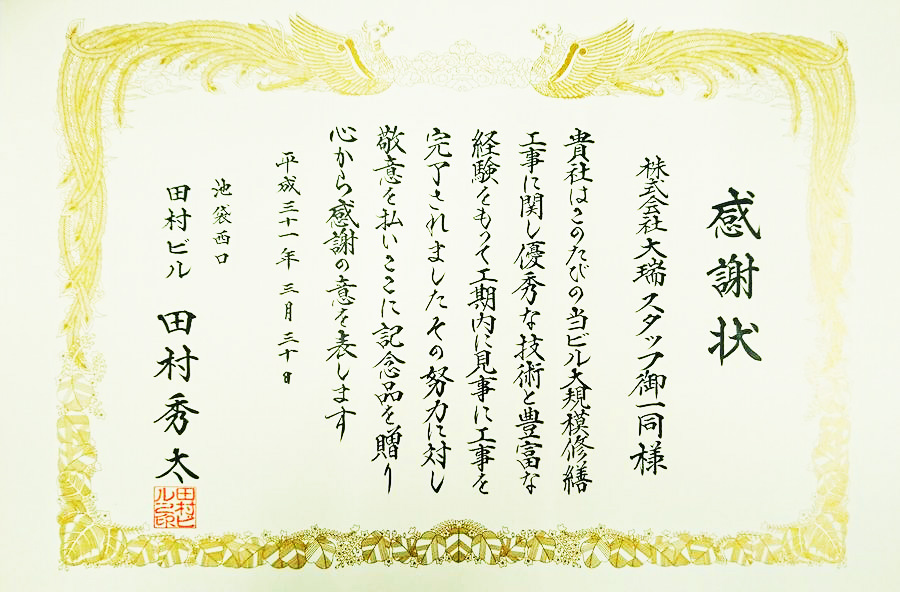 感謝状
株式会社大瑞スタッフ御一同様
貴社はこのたびの当ビル大規模修繕
工事に関し優秀な技術と豊富な
経験をもって工期内に見事に工事を
完了されましたその努力に対し
敬意を払いここに記念品を贈り
心から感謝の意を表します
平成三十一年三月三十日
池袋西口
田村ビル 田村秀太
田村ビ
ル之印